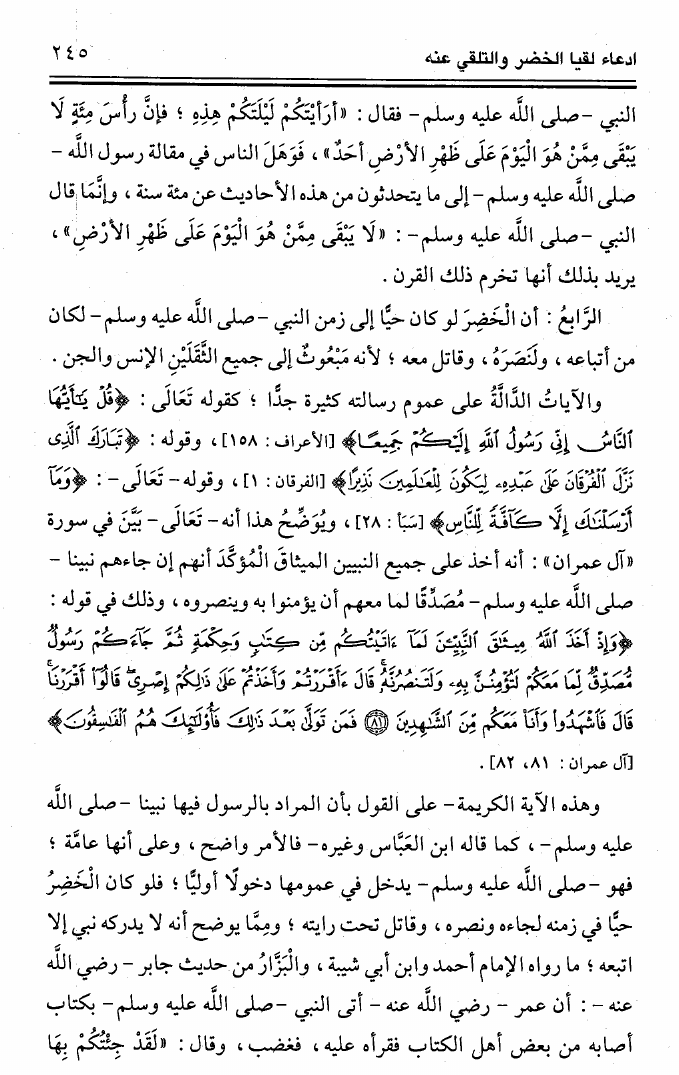 ادعاء لقيا الخضر والتلقي عنه ٢٤٥
النبي -صلى اللَّه عليه وسلم- فقال : «أَرَأَيْتَكُمْ لَيْلَتَكُمْ هَذِهِ ؛ فإنَّ رأْسَ مِئَةٍ لَا
يَبْقَى مِمَّنْ هُوَ الْيَوْمَ عَلَى ظَهْرِ الأَرْضِ أَحَدٌ» ، فَوَهَلَ الناس في مقالة رسول اللَّه -
صلى اللَّه عليه وسلم- إلى ما يتحدثون من هذه الأحاديث عن مئة سنة ، وإنَّمَا قال
النبي -صلى اللَّه عليه وسلم-: «لَا يَبْقَى مِمَّنْ هُوَ الْيَوْمَ عَلَى ظَهْرِ الأَرْضِ» ،
يريد بذلك أنها تخرم ذلك القرن .
الرَّابعُ : أن الْخَضِرَ لو كان حيًّا إلى زمن النبي -صلى اللَّه عليه وسلم- لكان
من أتباعه ، ولَنَصَرَهُ ، وقاتل معه ؛ لأنه مَبْعُوثٌ إلى جميع الثَّقَلَيْنِ الإنس والجن .
والآياتُ الدَّالَّةُ على عموم رسالته كثيرة جدًّا ؛ كقوله تَعَالَى : ﴿قُلْ يَٰٓأَيُّهَا
ٱلنَّاسُ إِنِّي رَسُولُ ٱللَّهِ إِلَيْكُمْ جَمِيعًا﴾ [الأعراف : ١٥٨] ، وقوله : ﴿تَبَارَكَ ٱلَّذِى
نَزَّلَ ٱلْفُرْقَانَ عَلَىٰ عَبْدِهِۦ لِيَكُونَ لِلْعَٰلَمِينَ نَذِيرًا﴾ [الفرقان : ١] ، وقوله- تَعَالَى-: ﴿وَمَآ
أَرْسَلْنَٰكَ إِلَّا كَآفَّةً لِّلنَّاسِ﴾ [سَبَأ : ٢٨] ، ويُوَضِّحُ هذا أنه- تَعَالَى- بَيَّنَ في سورة
«آل عمران» : أنه أخذ على جميع النبيين الميثاقَ الْمُؤكَّدَ أنهم إن جاءهم نبينا -
صلى اللَّه عليه وسلم- مُصَدِّقًا لما معهم أن يؤمنوا به وينصروه ، وذلك في قوله :
﴿وَإِذْ أَخَذَ ٱللَّهُ مِيثَٰقَ ٱلنَّبِيِّـۧنَ لَمَآ ءَاتَيْتُكُم مِّن كِتَٰبٍ وَحِكْمَةٍ ثُمَّ جَآءَكُمْ رَسُولٌ
مُّصَدِّقٌ لِّمَا مَعَكُمْ لَتُؤْمِنُنَّ بِهِۦ وَلَتَنصُرُنَّهُۥ قَالَ ءَأَقْرَرْتُمْ وَأَخَذْتُمْ عَلَىٰ ذَٰلِكُمْ إِصْرِى قَالُوٓا۟ أَقْرَرْنَا
قَالَ فَٱشْهَدُوا۟ وَأَنَا۠ مَعَكُم مِّنَ ٱلشَّٰهِدِينَ ۝٨١ فَمَن تَوَلَّىٰ بَعْدَ ذَٰلِكَ فَأُو۟لَٰٓئِكَ هُمُ ٱلْفَٰسِقُونَ﴾
[آل عمران : ٨١، ٨٢] .
وهذه الآية الكريمة- على القول بأن المراد بالرسول فيها نبينا -صلى اللَّه
عليه وسلم- ، كما قاله ابن العَبَّاس وغيره- فالأمر واضح ، وعلى أنها عامَّة ؛
فهو -صلى اللَّه عليه وسلم- يدخل في عمومها دخولًا أوليًّا ؛ فلو كان الْخَضِرُ
حيًّا في زمنه لجاءه ونصره ، وقاتل تحت رايته ؛ ومِمَّا يوضح أنه لا يدركه نبي إلا
اتبعه ؛ ما رواه الإمام أحمد وابن أبي شيبة ، والْبَزَّارُ من حديث جابر - رضي اللَّه
عنه -: أن عمر - رضي اللَّه عنه - أتى النبي -صلى اللَّه عليه وسلم- بكتاب
أصابه من بعض أهل الكتاب فقرأه عليه ، فغضب ، وقال : «لَقَدْ جِئْتُكُمْ بِهَا